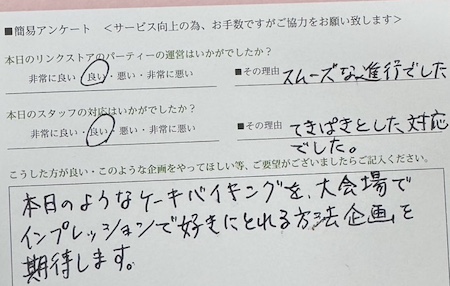 ■簡易アンケート ＜サービス向上の為、お手数ですがご協力をお願い致します＞
本日のリンクストアのパーティーの運営はいかがでしたか？
非常に良い・良い・悪い・非常に悪い ■その理由 スムーズな進行でした
本日のスタッフの対応はいかがでしたか？
非常に良い・良い・悪い・非常に悪い ■その理由 てきぱきとした対応
でした。
こうした方が良い・このような企画をやってほしい等、ご要望がございましたらご記入ください。
本日のようなケーキバイキングを、大会場で
インプレッションで好きにとれる方法企画を
期待します。